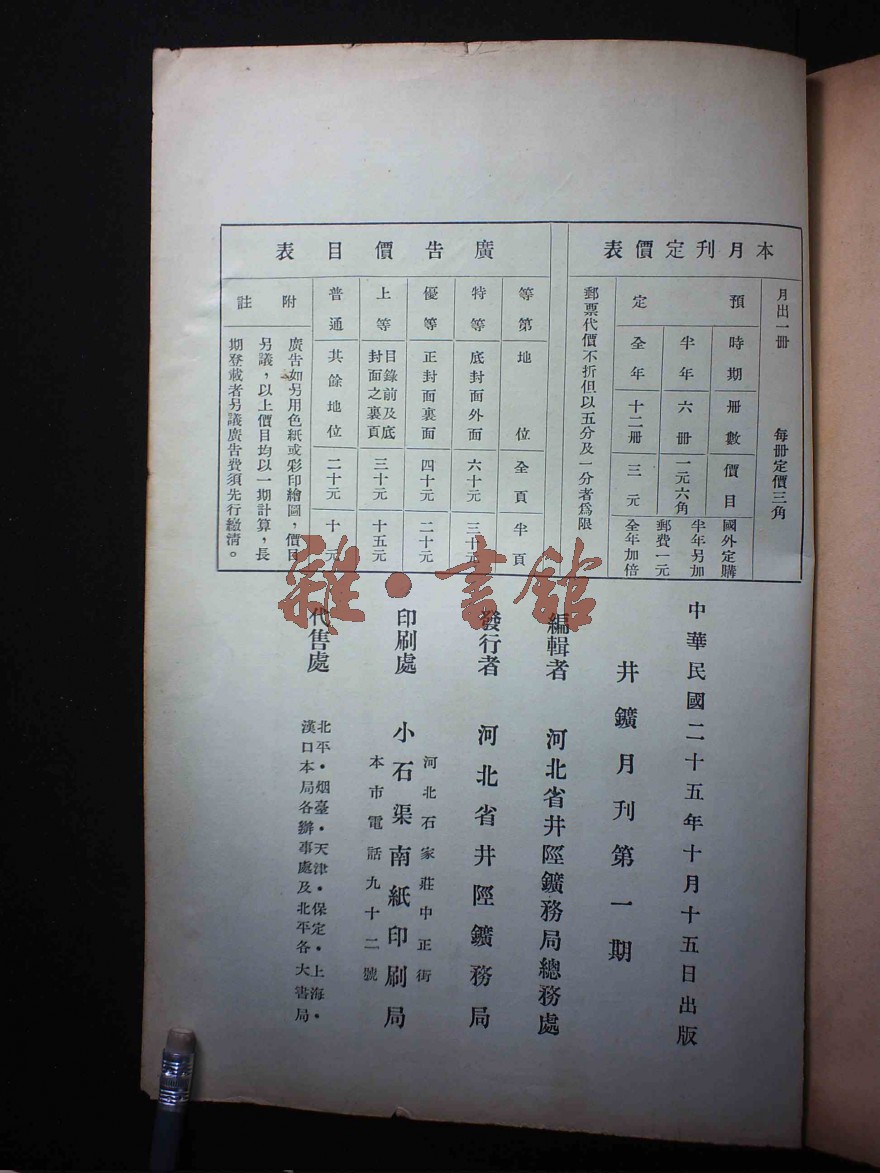 本月刊定價表
月出一冊 每冊定價三角
預定
時期 冊數 價目
半年 六冊 一元六角
全年 十二冊 三元
國外定購
半年另加
郵費一元
全年加倍
郵票代價不折但以五分及一分者爲限
廣告價目表
等第 地位 全頁 半頁
特等 底封面外面 六十元 三十元
優等 正封面裏面 四十元 二十元
上等 目錄前及底封面之裏頁 三十元 十五元
普通 其餘地位 二十元 十元
附註
廣告如另用色紙或彩印繪圖，價目
另議，以上價目均以一期計算，長
期登載者另議廣告費須先行繳清。
中華民國二十五年十月十五日出版
井鑛月刊第一期
編輯者 河北省井陘鑛務局總務處
發行者 河北省井陘鑛務局
印刷處 小石渠南紙印刷局
河北石家莊中正街
本市電話九十二號
代售處
北平·烟臺·天津·保定·上海·
漢口本局各辦事處及北平各大書局
雜·書館